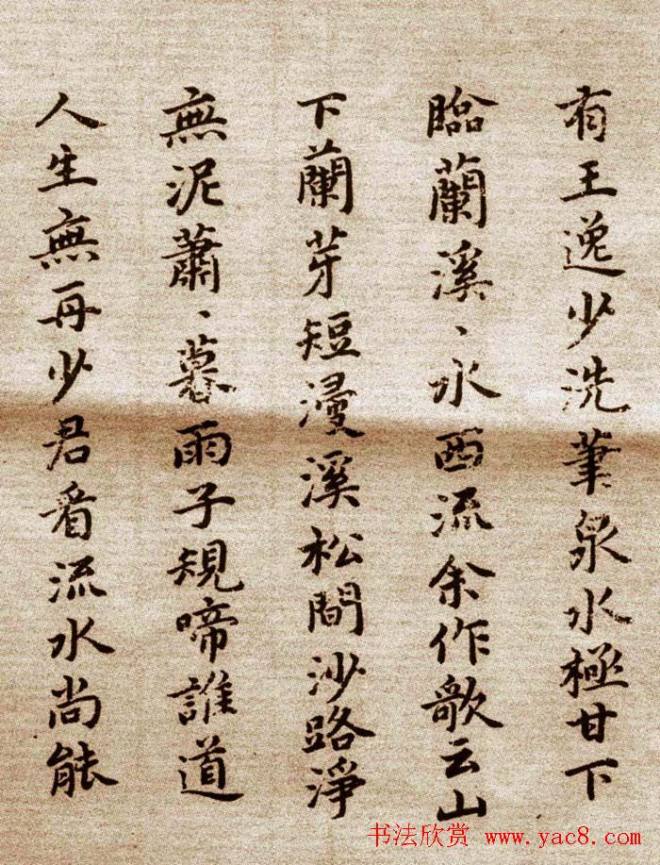 有王逸少洗筆泉水極甘下
臨蘭溪、水西流余作歌云山
下蘭芽短浸溪松間沙路淨
無泥蕭、暮雨子規啼誰道
人生無再少君看流水尚能
书法欣赏 www.yac8.com